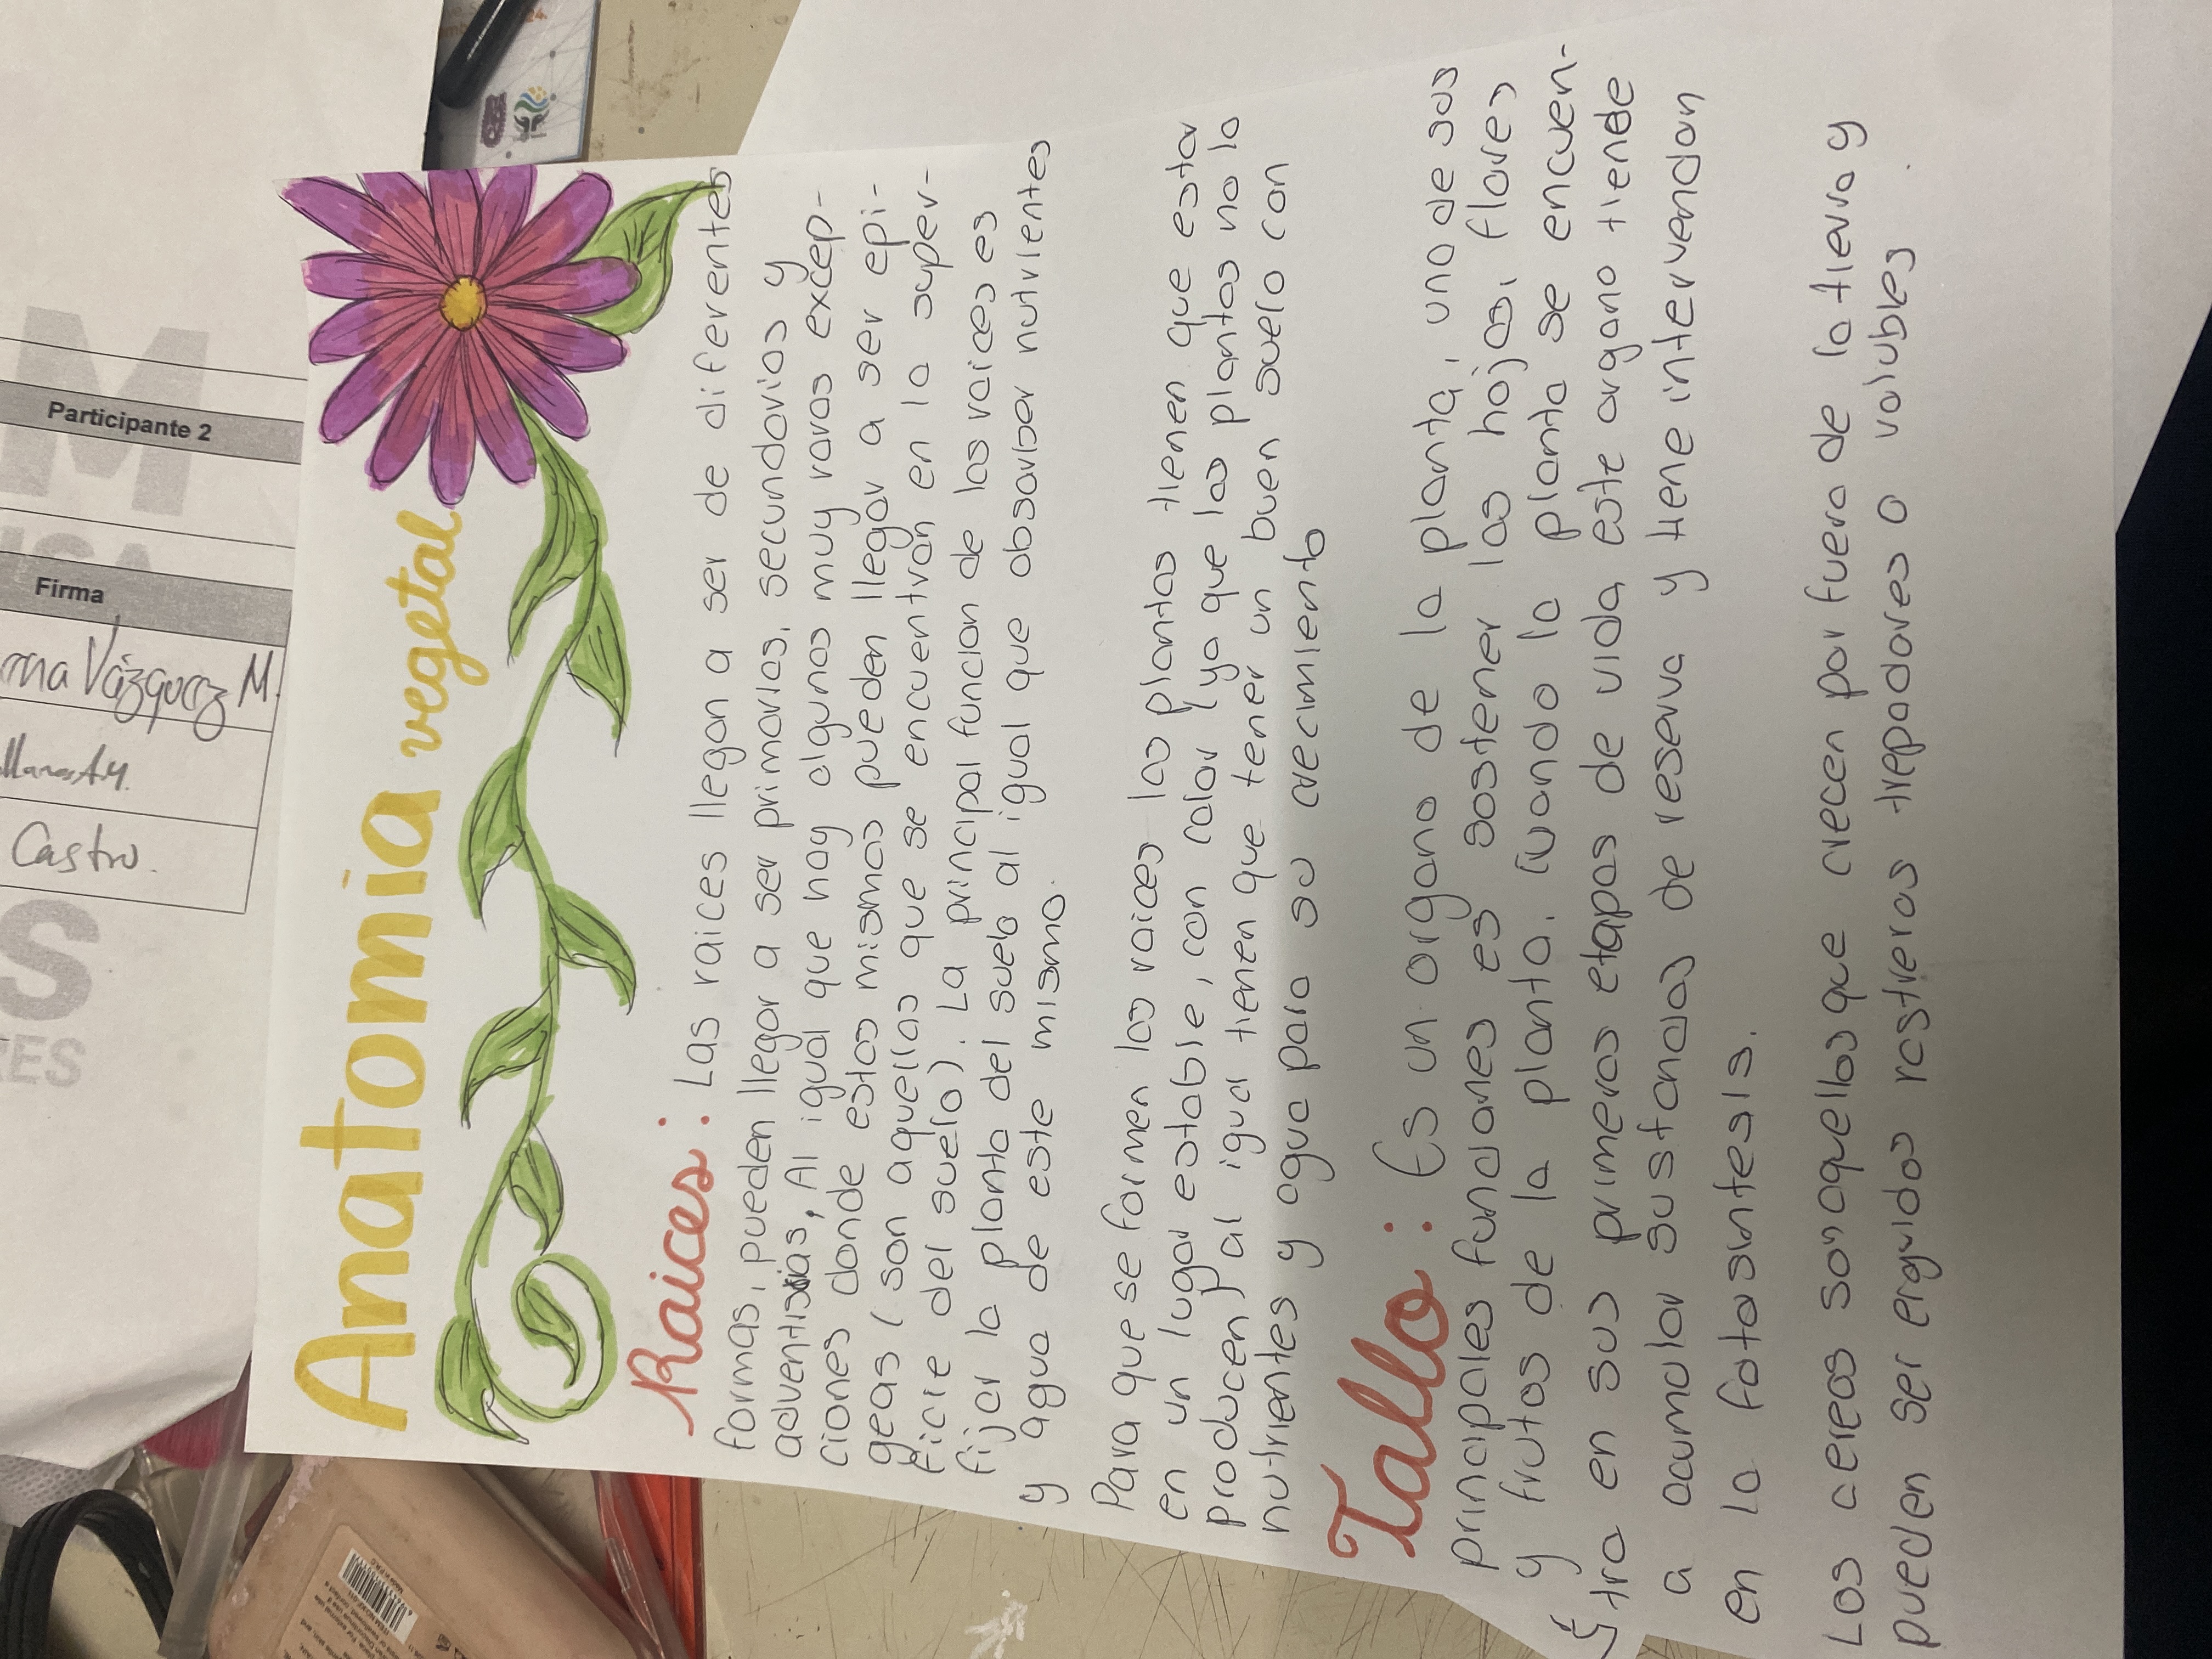 Anatomia vegetal
Raices: Las raices llegan a ser de diferentes
formas, pueden llegar a ser primarias, secundarias y
adventisias, Al igual que hay algunas muy raras excep-
ciones donde estas mismas pueden llegar a ser epi-
geas (son aquellas que se encuentran en la super-
ficie del suelo). La principal funcion de las raices es
fijar la planta del suelo al igual que absorber nutrientes
y agua de este mismo.
Para que se formen las raices las plantas tienen que estar
en un lugar estable, con calor (ya que las plantas no lo
producen) al igual tienen que tener un buen suelo con
nutrientes y agua para su crecimiento
Tallo: Es un organo de la planta, uno de sus
principales funciones es sostener las hojas, flores
y frutos de la planta. Cuando la planta se encuen-
tra en sus primeras etapas de vida este organo tiende
a acumular sustancias de reserva y tiene intervendon
en la fotosintesis.
Los aereos son aquellos que crecen por fuera de la tierra y
pueden ser erguidos rastreros trepadores o volubles.
Participante 2
Firma
Vázquez M.
Castro.
M
S